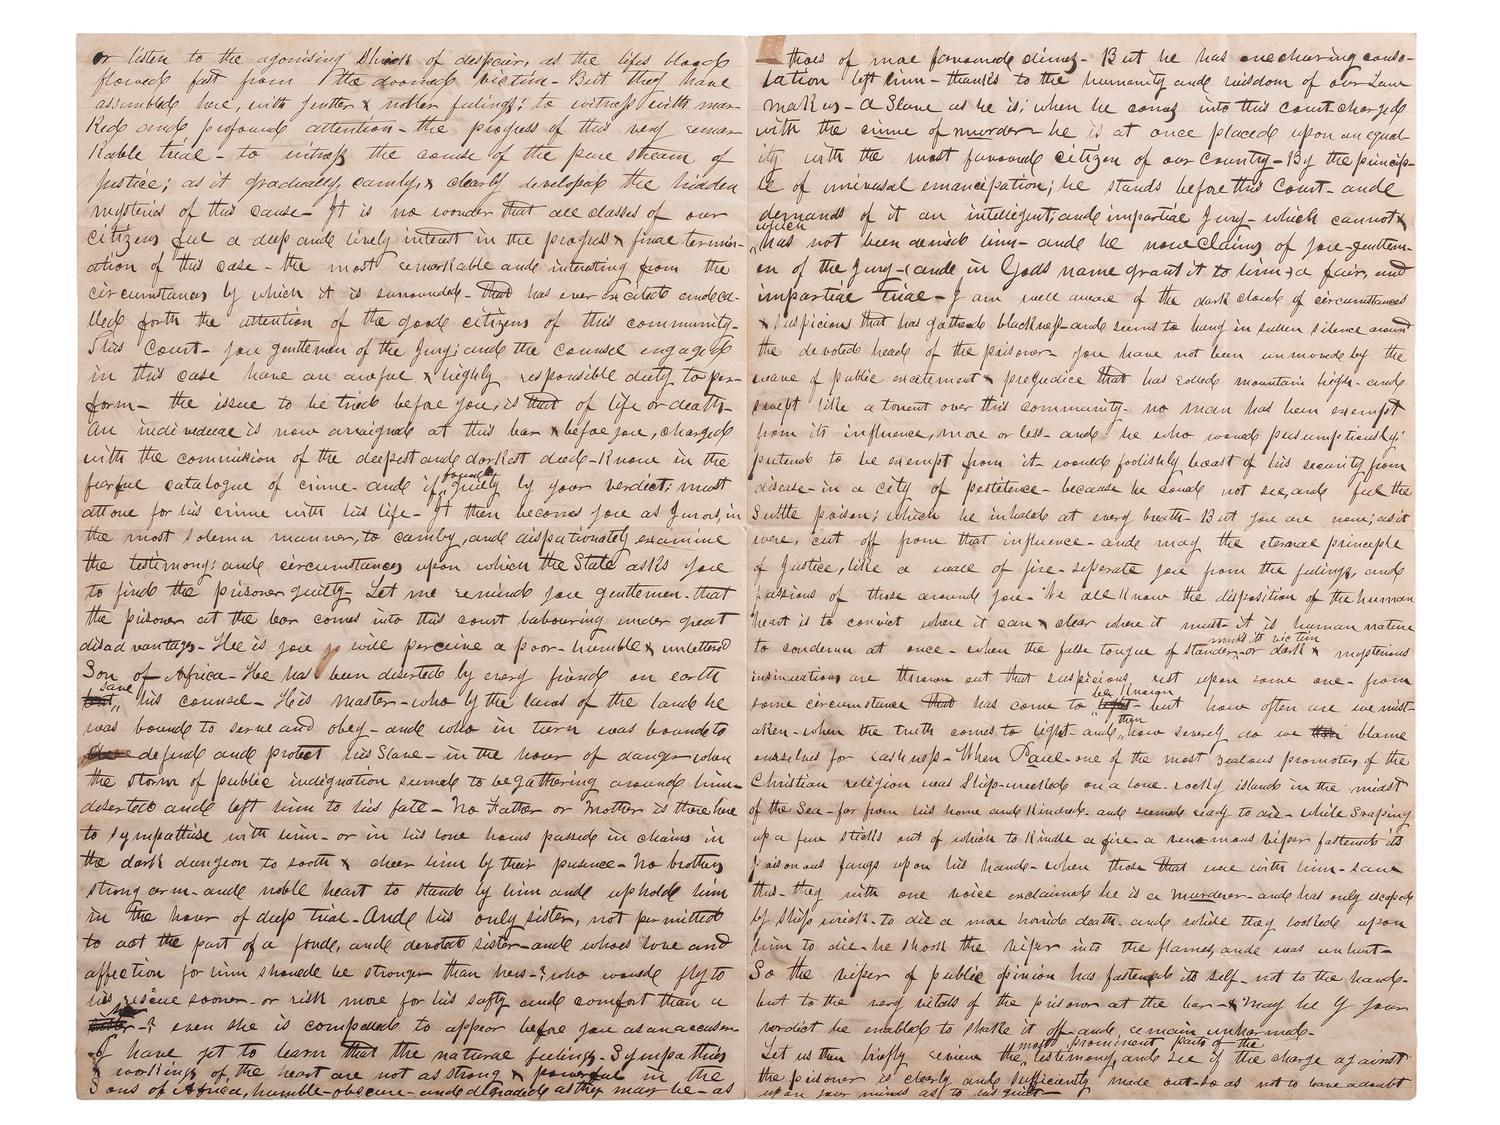 or listen to the agonising shriek of despair, as the lifes blood
flowed fast from the doomed victim - But they have
assembled here, with gentler & nobler feelings; to witness with mar-
ked and profound attention - the progress of this very remar-
kable trial - to witness the course of the pure stream of
Justice; as it gradually, camly, & clearly developes the hidden
mysteries of this cause - It is no wonder that all classes of our
citizens feel a deep and lively interest in the progress & final termin-
ation of this case - the most remarkable and interesting from the
circumstances by which it is surrounded - that has ever excited and ca-
lled forth the attention of the good citizens of this community -
This Court - you gentlemen of the Jury; and the counsel engaged
in this case have an awful & highly responsible duty to per-
form - the issue to be tried before you, is that of life or death -
An individual is now arraigned at this bar & before you, charged
with the commission of the deepest and darkest deed - Known in the
fearful catalogue of crime - and if found guilty by your verdict; must
attone for his crime with his life - It then becomes you as Jurors, in
the most solemn manner, to camly, and dispationately examine
the testimony; and circumstances upon which the State asks you
to find the prisoner guilty - Let me remind you gentlemen - that
the prisoner at the bar comes into this court labouring under great
disadvantages - He is you will perceive a poor - humble & unlettered
Son of Africa - He has been deserted by every friend on earth
save his counsel - His Master - who by the laws of the land he
was bound to serve and obey - and who in turn was bound to
defend and protect his Slave - in the hour of danger - when
the storm of public indignation seemed to be gathering around him -
deserted and left him to his fate - No Father or Mother is there here
to sympathise with him - or in his lone hours passed in chains in
the dark dungeon to sooth & cheer him by their presence - No brothers
strong arm - and noble heart to stand by him and uphold him
in the hour of deep trial - And his only sister, not permitted
to act the part of a fond, and devoted sister - and whose love and
affection for him should be stronger than hers - ? who would fly to
his rescue sooner - or risk more for his safty and comfort than a
- ? even she is compelled to appear before you as an accuser -
I have yet to learn that the natural feelings - Sympathies
& workings of the heart are not as strong & powerful in the
Sons of Africa, humble - obscure - and degraded as they may be - as
thoes of more favoured climes - But he has one cheering conso-
lation left him - thanks to the humanity and wisdom of our Law
makers - A Slave as he is; when he comes into this court charged
with the crime of murder - he is at once placed upon an equal-
ity with the most favoured citizen of our Country - By the princip-
le of universal emancipation; he stands before this Court - and
demands of it an intelligent, and impartial Jury - which cannot &
which has not been denied him - and he now claims of you - gentlem-
en of the Jury - (and in Gods name grant it to him) a fair, and
impartial trial - I am well aware of the dark cloud of circumstances
& suspicions that has gathered blackness and seems to hang in sullen silence around
the devoted head of the prisoner - you have not been unmoved by the
wave of public excitement & prejudice that has rolled mountain high - and
swept like a torrent over this community - no man has been exempt
from its influence, more or less - and he who would presumptiously
pretend to be exempt from it - would foolishly boast of his security from
disease - in a city of pestilence - because he could not see, and feel the
subtle poison; which he inhaled at every breath - But you are now; as it
were, cut off from that influence - and may the eternal principle
of Justice, like a wall of fire - seperate you from the feelings, and
passions of those around you - We all know the disposition of the human
heart is to convict where it can & clear where it must - it is human nature
to condemn at once - when the false tongue of slander marks its victim - or dark & mysterious
insinuations are thrown out that suspicions rest upon some one - from
some circumstance that has come to be known - but how often are we mist-
aken - when the truth comes to light - and then how severely do we blame
ourselves for rashness - When Paul - one of the most zealous promoters of the
Christian religion was Ship-wrecked on a lone - rocky island in the midst
of the Sea - far from his home and Kindred - and seemed ready to die - while Scraping
up a few sticks out of which to Kindle a fire - a venomous viper fastened its
poisonous fangs upon his hand - when those that were with him - saw
this - they with one voice exclaimed he is a murderer - and has only escaped
by ship wrick - to die a more horrid death - and while they looked upon
him to die - he shook the viper into the flames, and was unhurt -
So the viper of public opinion has fastened its self - not to the hand -
but to the very vitals of the prisoner at the bar - & may he by your
verdict be enabled to shake it off - and remain unharmed -
Let us then briefly review the most prominent parts of the testimony, and see if the charge against
the prisoner is clearly and sufficiently made out - so as not to leave a doubt
upon your minds as to his guilt -